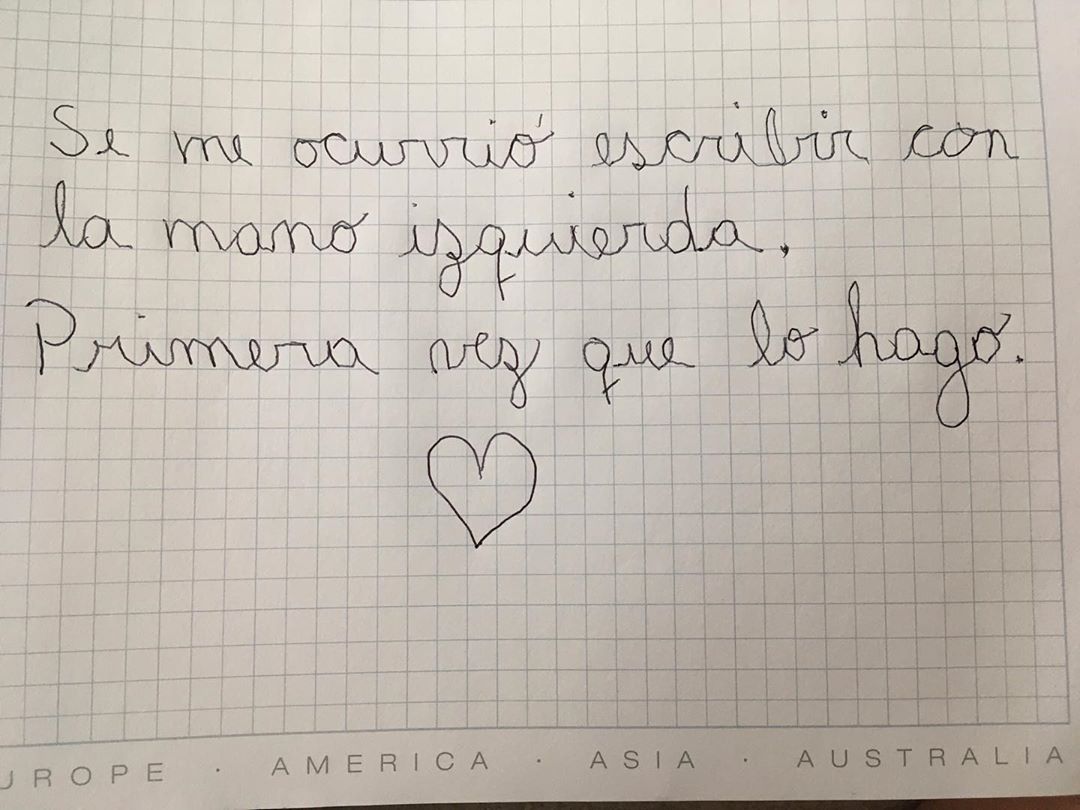 Se me ocurrió escribir con
la mano izquierda.
Primera vez que lo hago.
UROPE · AMERICA · ASIA · AUSTRALIA